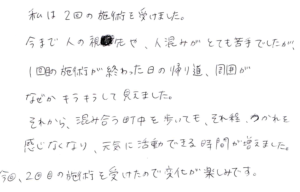 私は2回の施術を受けました。
今まで人の視先や、人混みがとても苦手でしたが、
1回目の施術が終わった日の帰り道、周囲が
なぜかキラキラして見えました。
それから、混み合う町中を歩いても、それ程つかれを
感じなくなり、元気に活動できる時間が増えました。
今回、2回目の施術を受けたので変化が楽しみです。